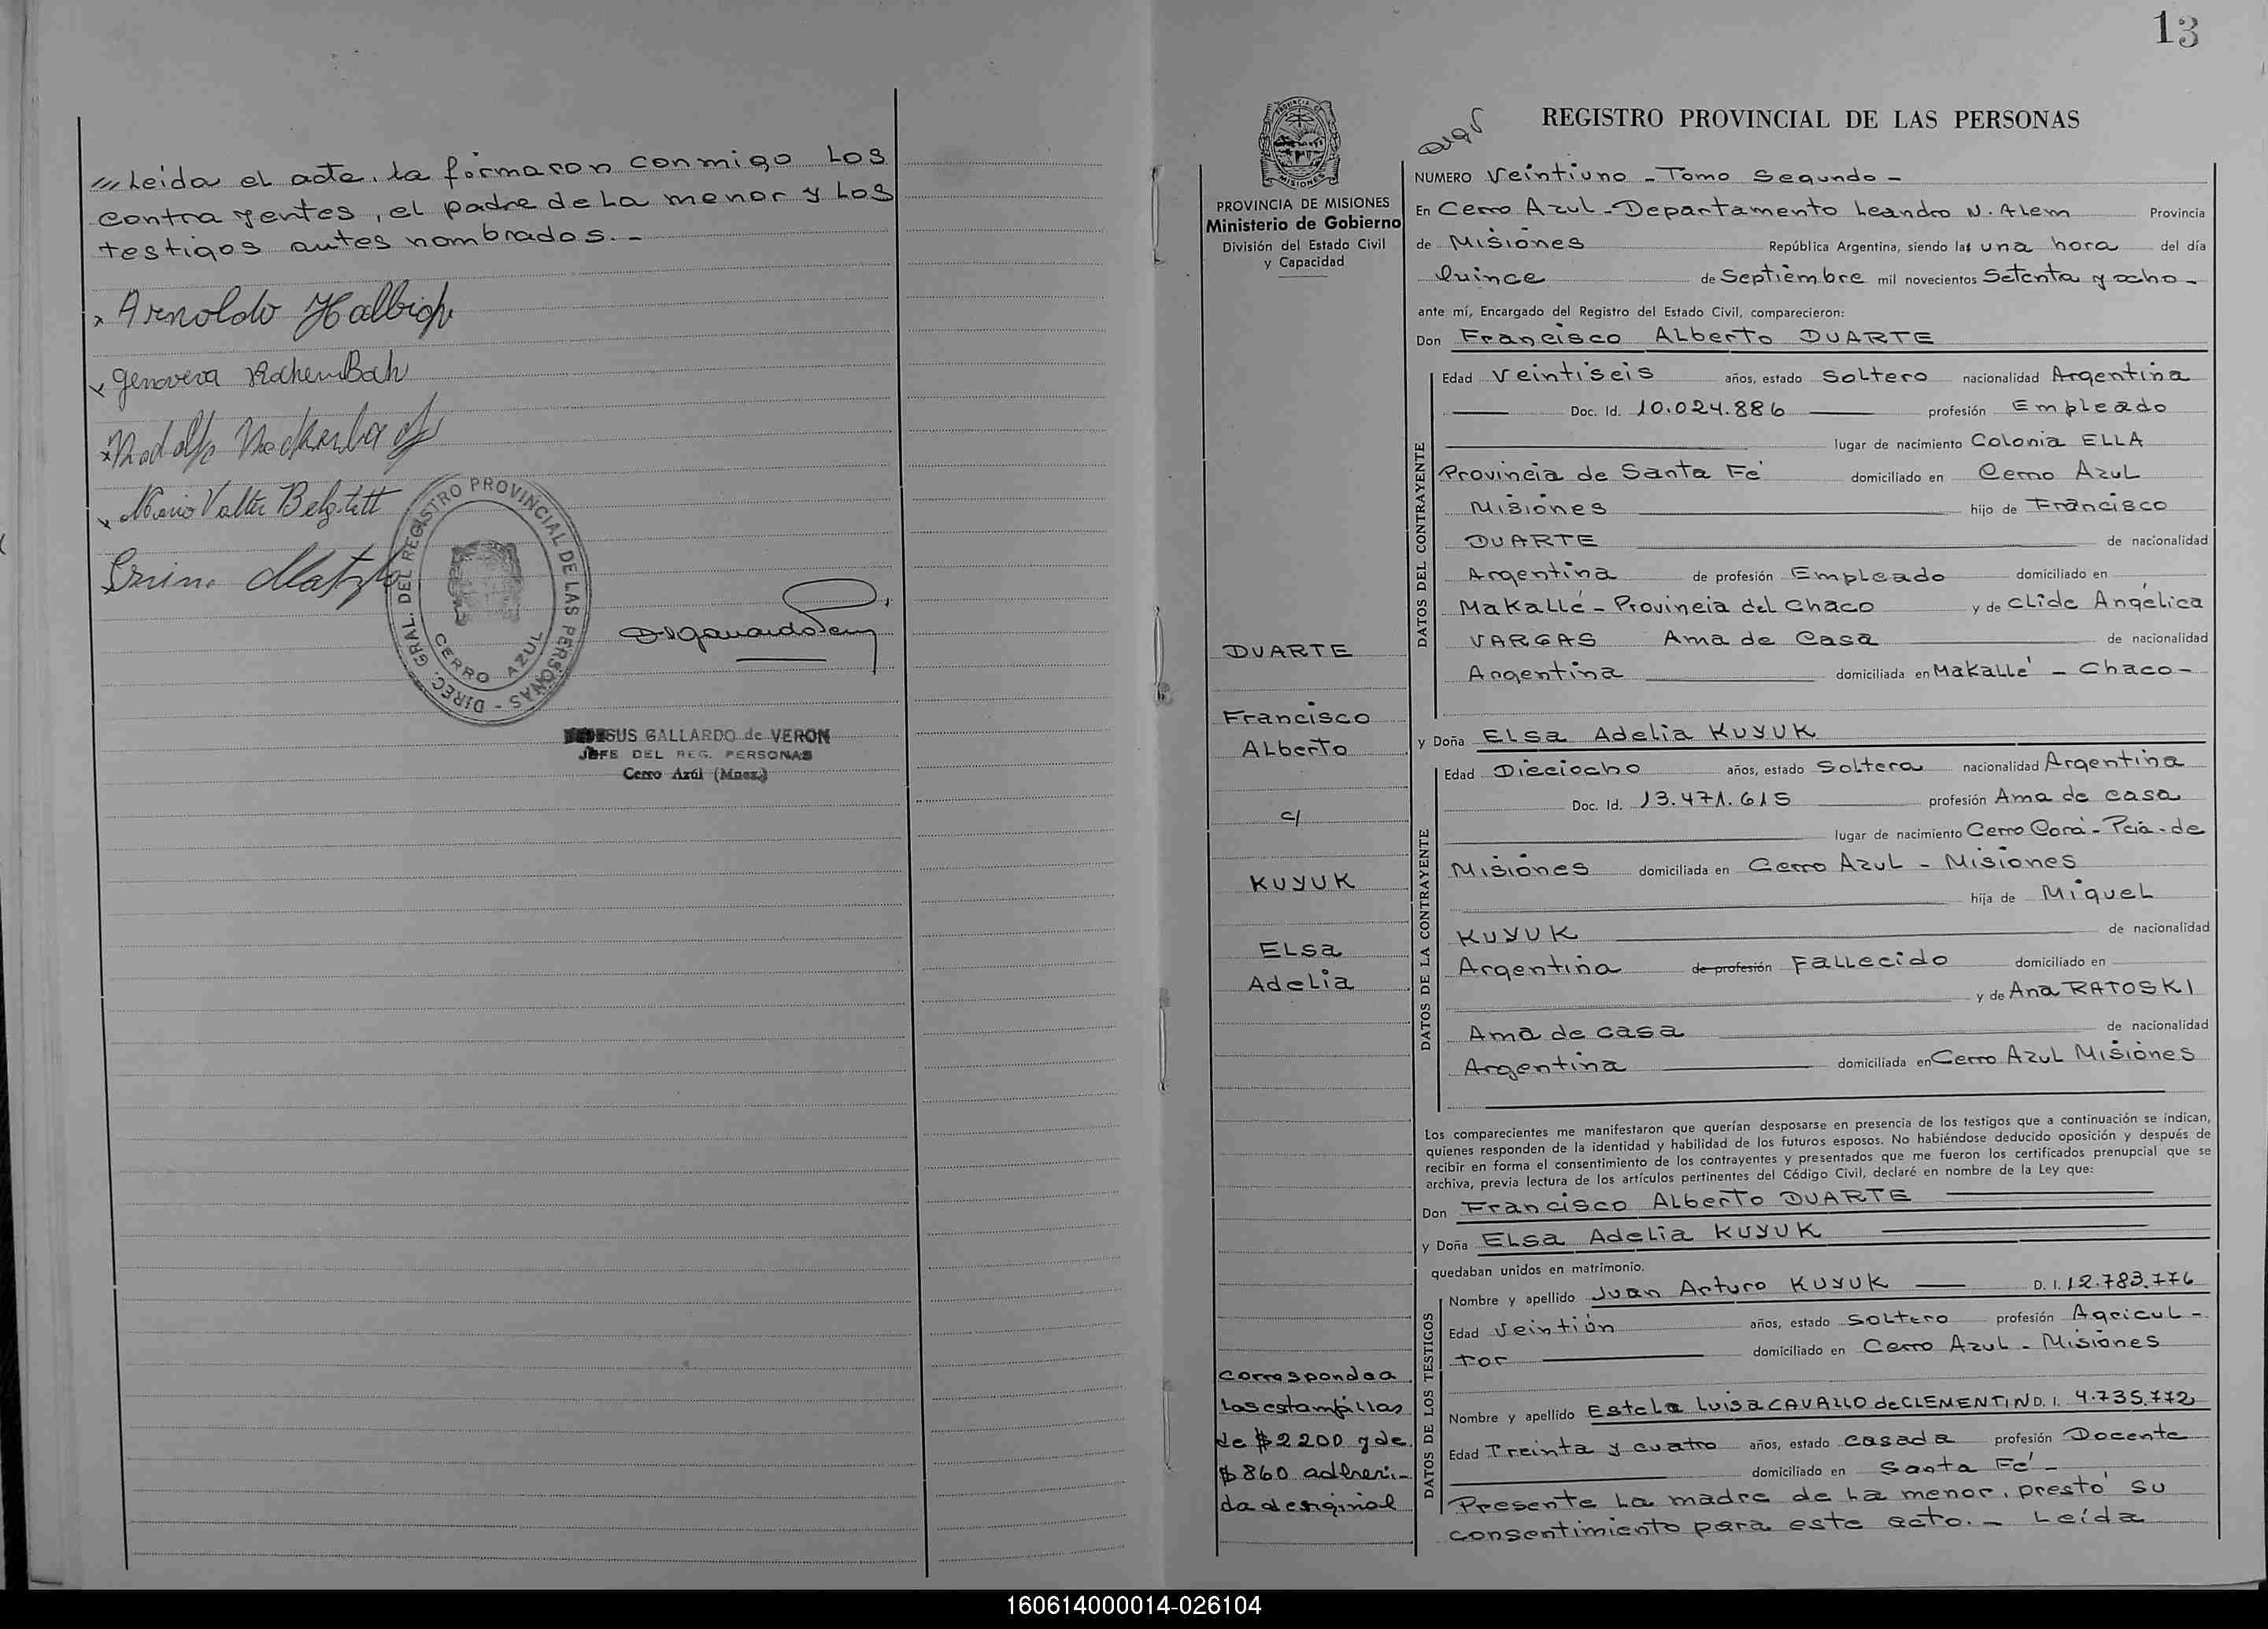 /// Leida el acta, la firmaron conmigo los
contrayentes, el padre de la menor y los
testigos antes nombrados. -
x Arnoldo Halbich
x Genoveva
x Rodolfo
x Mario Valter
DIREC. GRAL. DEL REGISTRO PROVINCIAL DE LAS PERSONAS -
CERRO AZUL
JESUS GALLARDO de VERON
JEFE DEL REG. PERSONAS
Cerro Azúl (Mnes.)
13
PROVINCIA DE MISIONES
Ministerio de Gobierno
División del Estado Civil
y Capacidad
DUARTE
Francisco
Alberto
c/
KUYUK
Elsa
Adelia
Corresponde a
las estampillas
de $ 2200 y de
$ 860 adheri-
da al original
REGISTRO PROVINCIAL DE LAS PERSONAS
NUMERO Veintiuno - Tomo Segundo -
En Cerro Azul - Departamento Leandro N. Alem Provincia
de Misiones República Argentina, siendo las una hora del día
Quince de Septiembre mil novecientos Setenta y ocho -
ante mí, Encargado del Registro del Estado Civil, comparecieron:
Don Francisco Alberto DUARTE
DATOS DEL CONTRAYENTE
Edad Veintiseis años, estado Soltero nacionalidad Argentina
Doc. Id. 10.024.886 profesión Empleado
lugar de nacimiento Colonia ELLA
Provincia de Santa Fé domiciliado en Cerro Azul
Misiones hijo de Francisco
DUARTE de nacionalidad
Argentina de profesión Empleado domiciliado en
Makallé - Provincia del Chaco y de Clide Angélica
VARGAS Ama de Casa de nacionalidad
Argentina domiciliada en Makallé - Chaco -
y Doña Elsa Adelia KUYUK
DATOS DE LA CONTRAYENTE
Edad Dieciocho años, estado Soltera nacionalidad Argentina
Doc. Id. 13.471.615 profesión Ama de casa
lugar de nacimiento Cerro Corá - Pcia. de
Misiones domiciliada en Cerro Azul - Misiones
hija de Miguel
KUYUK de nacionalidad
Argentina de profesión Fallecido domiciliado en
y de Ana RATOSKI
Ama de casa de nacionalidad
Argentina domiciliada en Cerro Azul Misiones
Los comparecientes me manifestaron que querían desposarse en presencia de los testigos que a continuación se indican,
quienes responden de la identidad y habilidad de los futuros esposos. No habiéndose deducido oposición y después de
recibir en forma el consentimiento de los contrayentes y presentados que me fueron los certificados prenupcial que se
archiva, previa lectura de los artículos pertinentes del Código Civil, declaré en nombre de la Ley que:
Don Francisco Alberto DUARTE
y Doña Elsa Adelia KUYUK
quedaban unidos en matrimonio.
DATOS DE LOS TESTIGOS
Nombre y apellido Juan Arturo KUYUK D. I. 12.783.776
Edad Veintiún años, estado Soltero profesión Agricul-
tor domiciliado en Cerro Azul - Misiones
Nombre y apellido Estela Luisa CAVALLO de CLEMENTIN D. I. 4.735.772
Edad Treinta y cuatro años, estado casada profesión Docente
domiciliado en Santa Fé -
Presente la madre de la menor, prestó su
consentimiento para este acto. - Leída
160614000014-026104